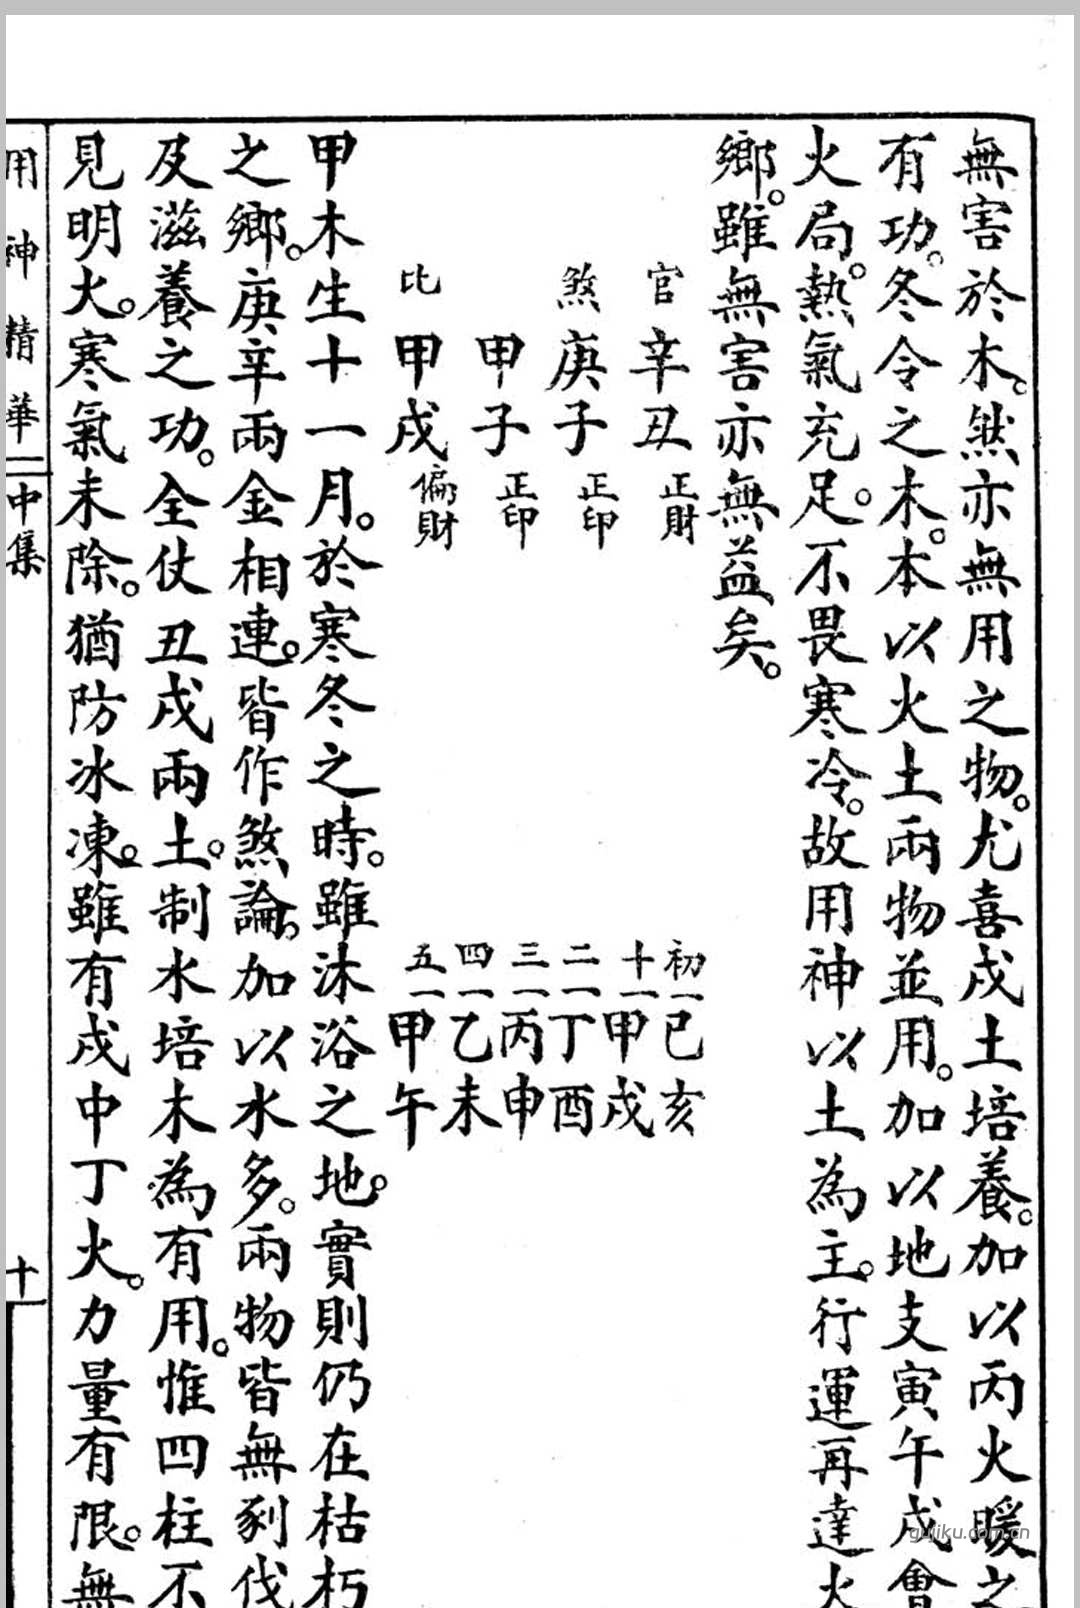 無害於木。然亦無用之物。尤喜戌土培養。加以丙火暖之
有功。冬令之木。本以火土兩物並用。加以地支寅午戌會
火局。熱氣充足。不畏寒冷。故用神以土為主。行運再達火
鄉。雖無害亦無益矣。
官 辛丑 正財
煞 庚子 正印
甲子 正印
比 甲戌 偏財
初一 己亥
十一 甲戌
二一 丁酉
三一 丙申
四一 乙未
五一 甲午
甲木生十一月。於寒冬之時。雖沐浴之地。實則仍在枯朽
之鄉。庚辛兩金相連。皆作煞論。加以水多。兩物皆無剝伐
及滋養之功。全仗丑戌兩土。制水培木為有用。惟四柱不
見明火。寒氣未除。猶防冰凍。雖有戌中丁火。力量有限。無
用神精華 中集 十
gujiku.com.cn